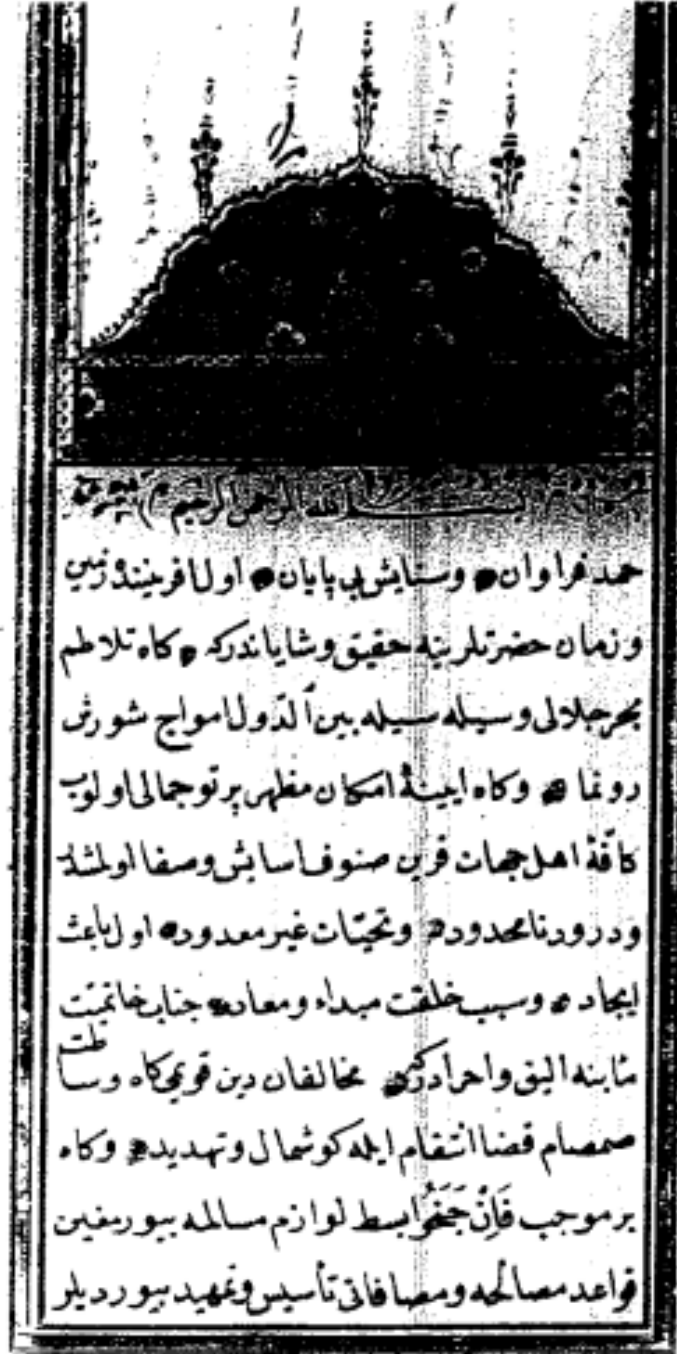 بسم الله الرحمن الرحيم
حمد فراوان وستايش بى پايان اول افرينندۀ زمين
وزمان حضرتلرينه حقيق وشاياندركه كاه تلاطم
بحر جلالى وسيله سيله بين الدّول امواج شورش
رونما وكاه ايينۀ امكان مظهر پرتو جمالى اولوب
كافّۀ اهل جهات قرين صنوف اسايش وصفا اولمشلر
ودرود نامحدود وتحيّات غير معدود اول باعث
ايجاد وسبب خلقت مبداء ومعاد جناب خاتميّت
مئابنه اليق واحرادركه مخالفان دين قويمى كاه وساطت
صمصام قضا انتقام ايله كوشمال وتهديد وكاه
بر موجب فَاِنْ جَنَحُوا بسط لوازم مسالمه بيوروب
قواعد مصالحه ومصافاتى تأسيس وتمهيد بيورديلر